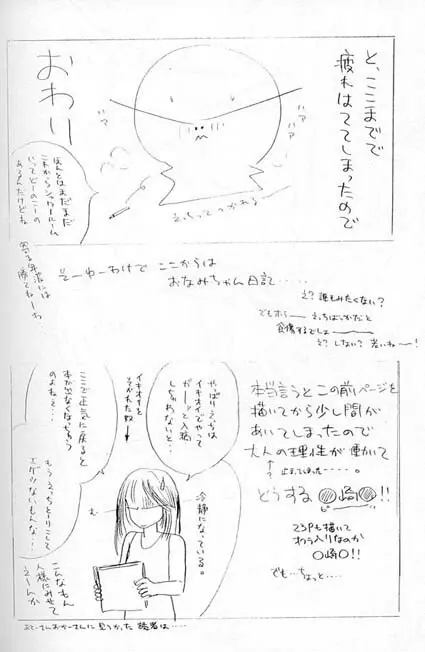 と、ここまでで
疲れはててしまったので
おわり
ハァ
ハァ
ハァ
えっちってつかれる
ほんとはまだまだ
これからシャワールーム
いってどーのこーの
あるんだけどね
寄る年波には
勝てねーわ
そーゆーわけで ここからは
おなみちゃん日記‥‥‥
え?誰もみたくない?
でもホラ えっちばっかだと
食傷するでしょ
え?しない?若いねー!
本当言うとこの前ページを
描いてから少し間が
あいてしまったので
大人の理性が働いて
止まってしまった‥‥‥
どうする〇崎〇!!
ピー
23Pも描いて
おわり入りなのか
〇崎〇!!
でも…ちょっと……
やっぱりえっちは
イキオイでやって
ガーッと入稿
しなわないと…
イキオイを
そがれた奴
ここで正気に戻ると
本が出なくなっちゃう
のよねぇ…
もうえっちとりこして
エゲツないもんな…
こんなもん
人様にみせて
えーんか
む…
冷静になっている。
おとーさんおかーさんに見つかった読者は……